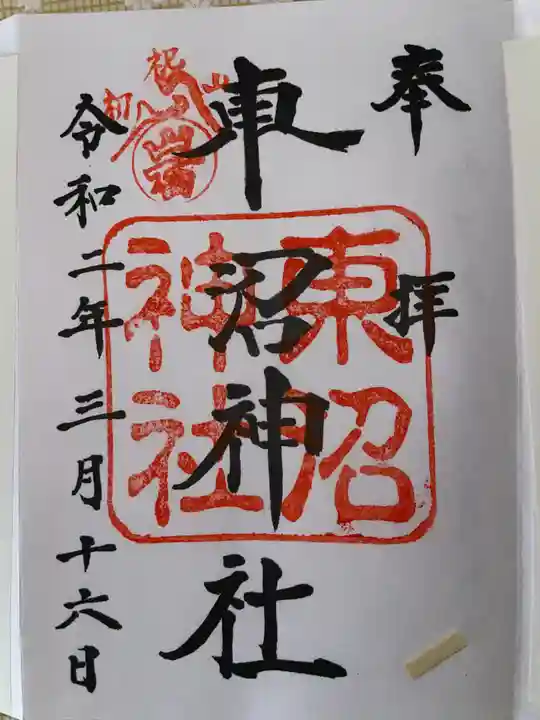 奉拝
東沼神社
東沼
神社
令和二年三月十六日